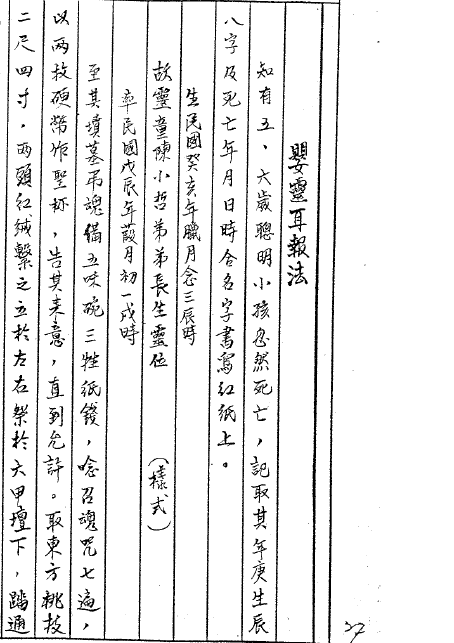 27
嬰靈耳報法
知有五、六歲聰明小孩忽然死亡，記取其年庚生辰
八字及死亡年月日時合名字書寫紅紙上。
生民國癸亥年臘月念三辰時
故靈童陳小哲弟弟長生靈位　（樣式）
卒民國戊辰年葭月初一戌時
至其墳墓吊魂備五味碗三牲紙錢，唸召魂咒七遍，
以兩枚硬幣作聖杯，告其来意，直到允許。取東方桃枝
二尺四寸，兩頭紅絨繫之立於左右祭於六甲壇下，踏通